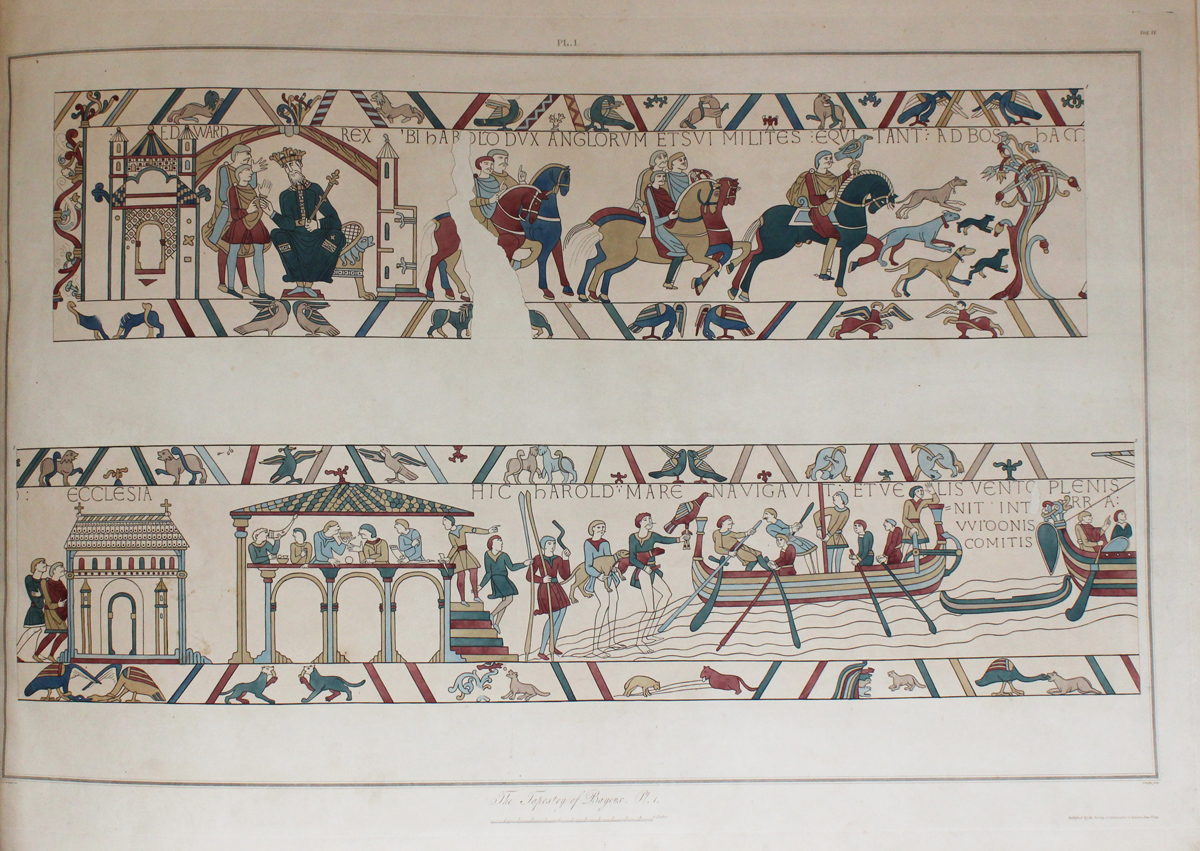 PL. I.
EDWARD REX VBI HAROLD DVX ANGLORVM ET SVI MILITES : EQVITANT : AD BOSHAM
: ECCLESIA HIC HAROLD : MARE NAVIGAVIT ET VELIS VENTO PLENIS
VENIT INT ERRA :
VVIDONIS
COMITIS
The Tapestry of Bayeux. Pl. 1.